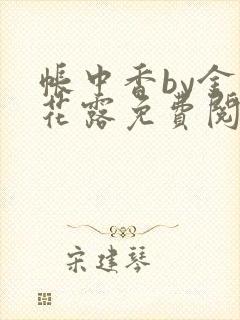 帐中香by金
花露免費閱
宋建琴